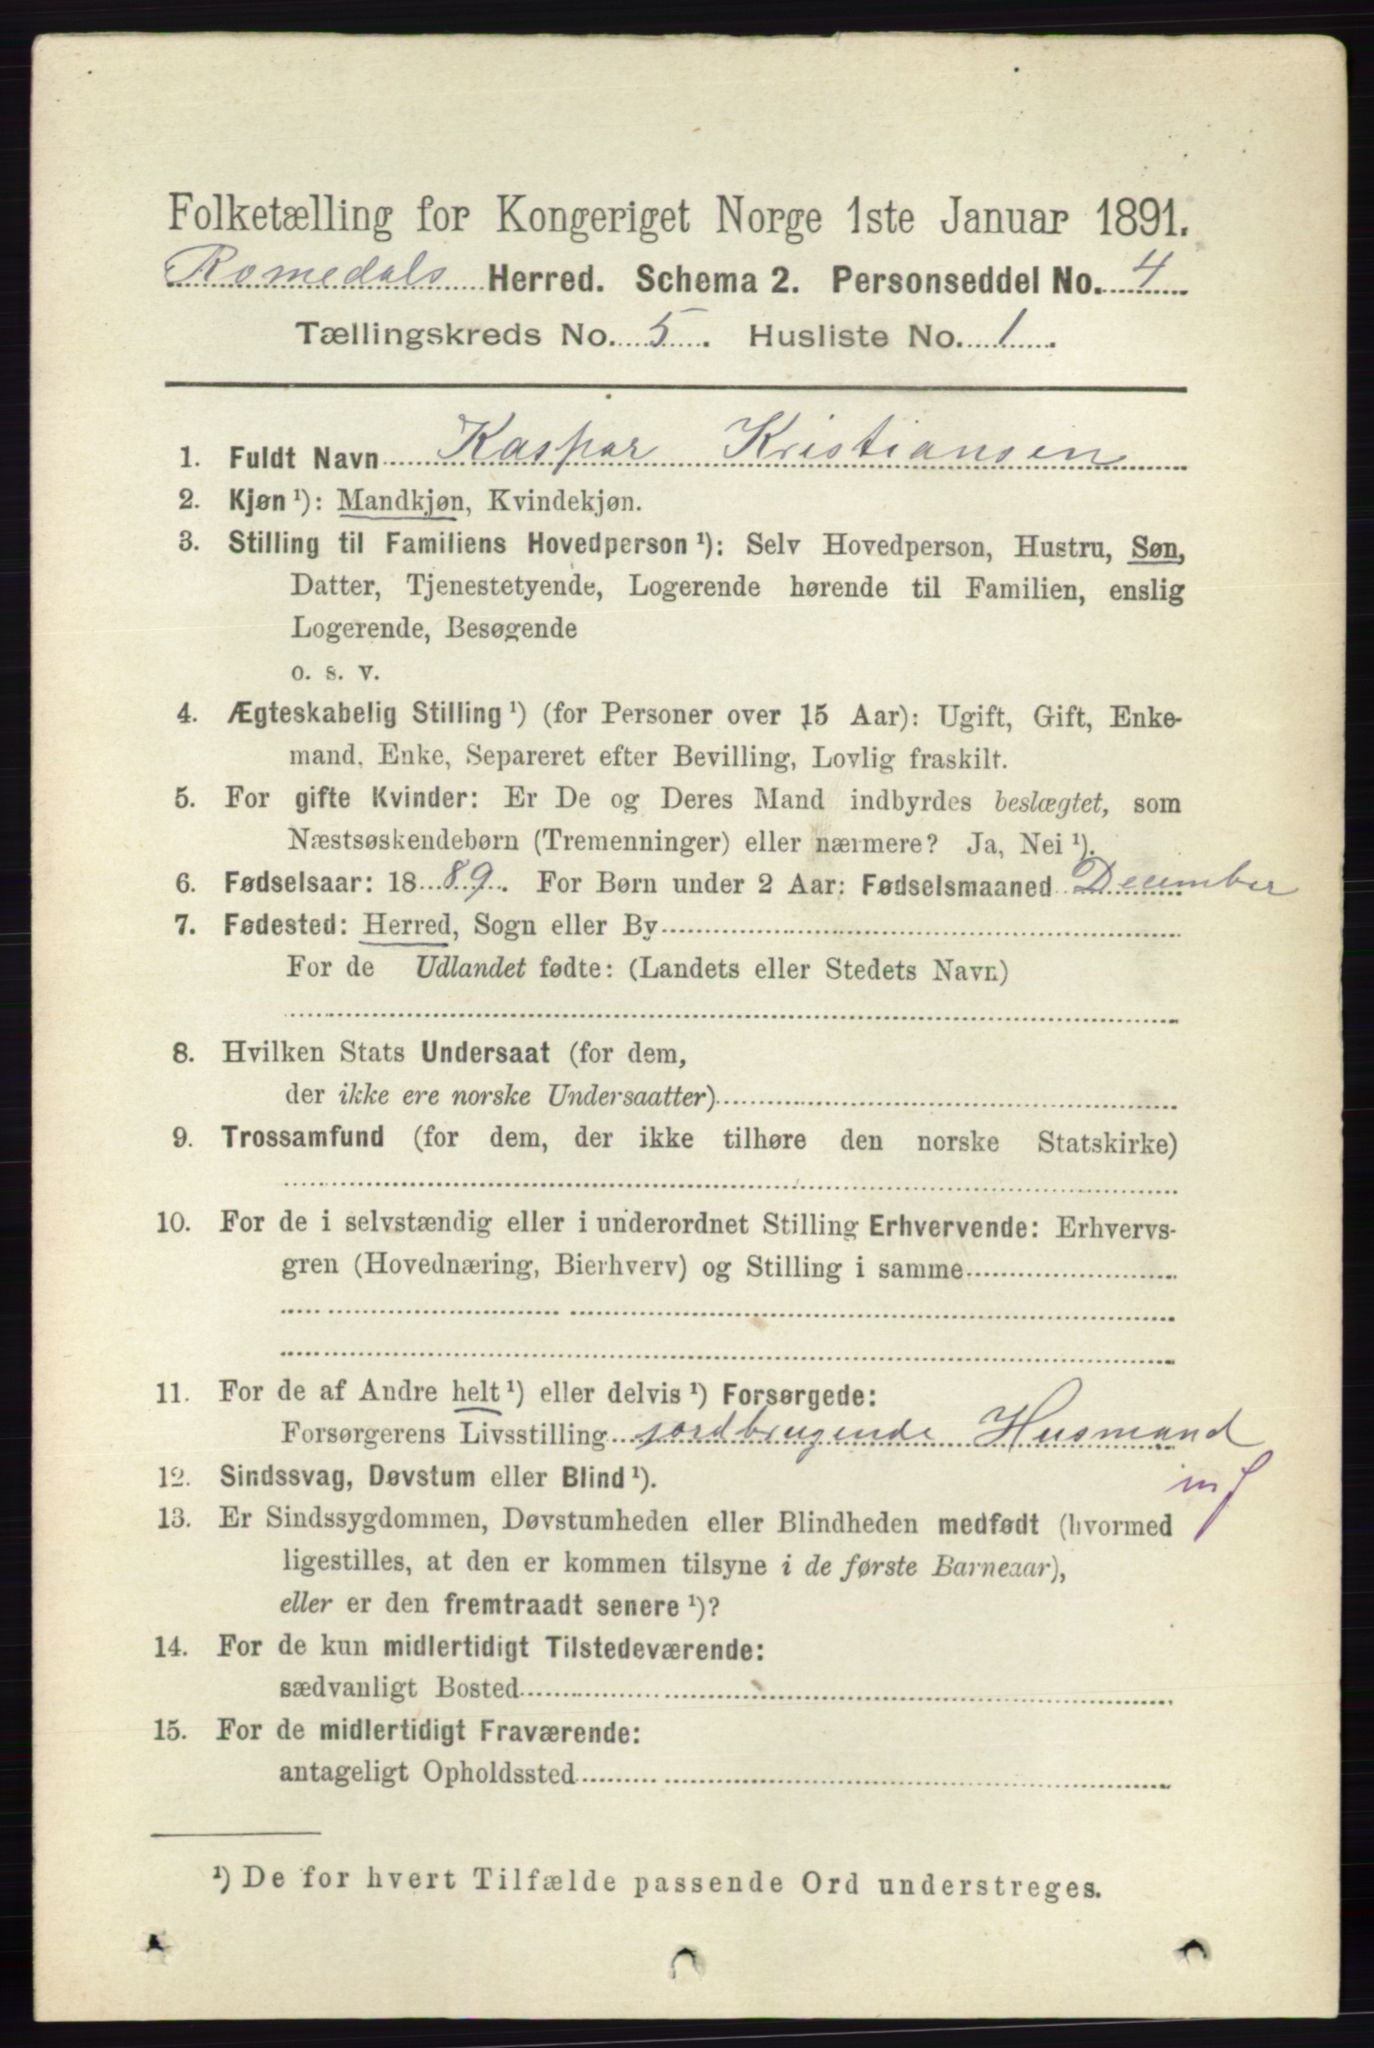 Folketælling for Kongeriget Norge 1ste Januar 1891.
Romedals Herred. Schema 2. Personseddel No. 4
Tællingskreds No. 5. Husliste No. 1.
1. Fuldt Navn Kaspar Kristiansen
2. Kjøn ¹): Mandkjøn, Kvindekjøn.
3. Stilling til Familiens Hovedperson ¹): Selv Hovedperson, Hustru, Søn,
Datter, Tjenestetyende, Logerende hørende til Familien, enslig
Logerende, Besøgende
o. s. v.
4. Ægteskabelig Stilling ¹) (for Personer over 15 Aar): Ugift, Gift, Enke-
mand, Enke, Separeret efter Bevilling, Lovlig fraskilt.
5. For gifte Kvinder: Er De og Deres Mand indbyrdes beslægtet, som
Næstsøskendebørn (Tremenninger) eller nærmere? Ja, Nei ¹).
6. Fødselsaar: 1889. For Børn under 2 Aar: Fødselsmaaned December
7. Fødested: Herred, Sogn eller By
For de Udlandet fødte: (Landets eller Stedets Navn)
8. Hvilken Stats Undersaat (for dem,
der ikke ere norske Undersaatter)
9. Trossamfund (for dem, der ikke tilhøre den norske Statskirke)
10. For de i selvstændig eller i underordnet Stilling Erhvervende: Erhvervs-
gren (Hovednæring, Bierhverv) og Stilling i samme
11. For de af Andre helt ¹) eller delvis ¹) Forsørgede:
Forsørgerens Livsstilling jordbrugende Husmand
12. Sindssvag, Døvstum eller Blind ¹).
13. Er Sindssygdommen, Døvstumheden eller Blindheden medfødt (hvormed
ligestilles, at den er kommen tilsyne i de første Barneaar),
eller er den fremtraadt senere ¹)?
14. For de kun midlertidigt Tilstedeværende:
sædvanligt Bosted
15. For de midlertidigt Fraværende:
antageligt Opholdssted
¹) De for hvert Tilfælde passende Ord understreges.